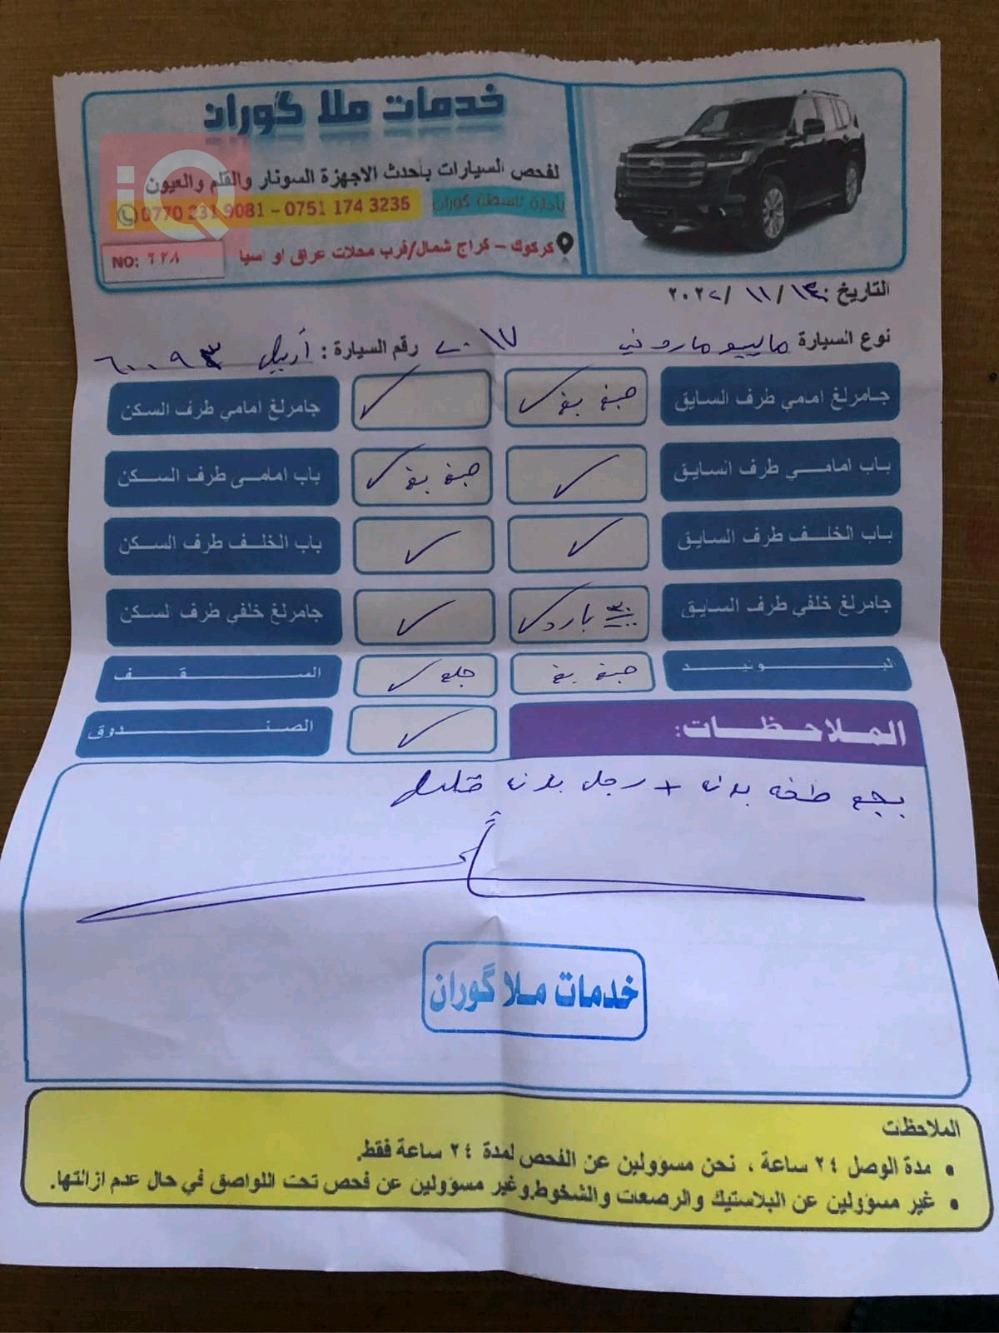 خدمات ملا گوران
لفحص السيارات بأحدث الاجهزة السونار والقلم والعيون
بأدارة ئاسطة گوران 0770 231 9081 - 0751 174 3235
كركوك - كراج شمال/قرب محلات عراق او اسيا
NO: ٦٢٨
iQ
التاريخ ١٣٠/ ١١ / ٢٠٢٢
نوع السيارة ماليبو ماروني ٢٠١٧ رقم السيارة : أربيل ٦٠٠٩٣
جامرلغ امامي طرف السايق صبغ بغ ✓ ✓ جامرلغ امامي طرف السكن
باب امامي طرف السايق ✓ صبغ بغ ✓ باب امامي طرف السكن
باب الخلف طرف السايق ✓ ✓ باب الخلف طرف السكن
جامرلغ خلفي طرف السايق بارد ✓ ✓ جامرلغ خلفي طرف لسكن
البونيد صبغ بغ ✓ السقف
✓ الصندوق
الملاحظات:
بدن + رجل بدن
خدمات ملا گوران
الملاحظات
• مدة الوصل ٢٤ ساعة ، نحن مسؤولين عن الفحص لمدة ٢٤ ساعة فقط.
• غير مسؤولين عن البلاستيك والرصعات والشخوط.وغير مسؤولين عن فحص تحت اللواصق في حال عدم ازالتها.